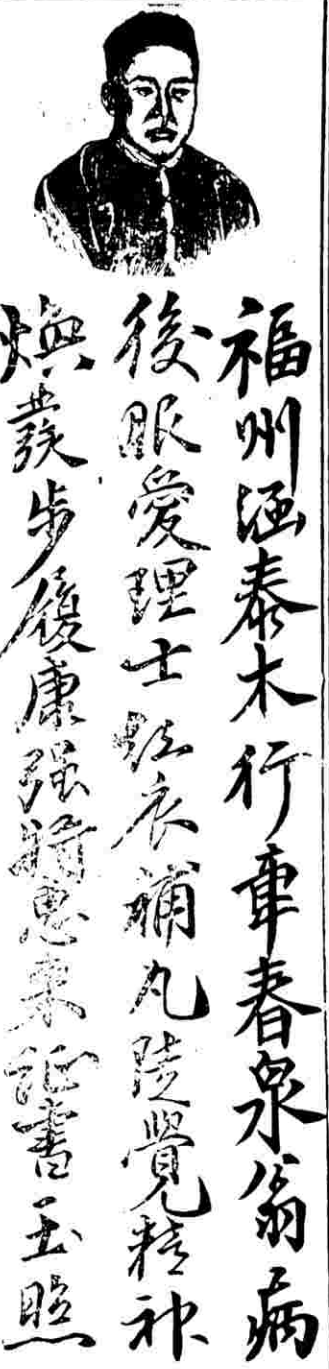 福州涵泰木行章春泉翁病
後服愛理士紅衣補丸陡覺精神
煥發步履康强將惠來証書玉照